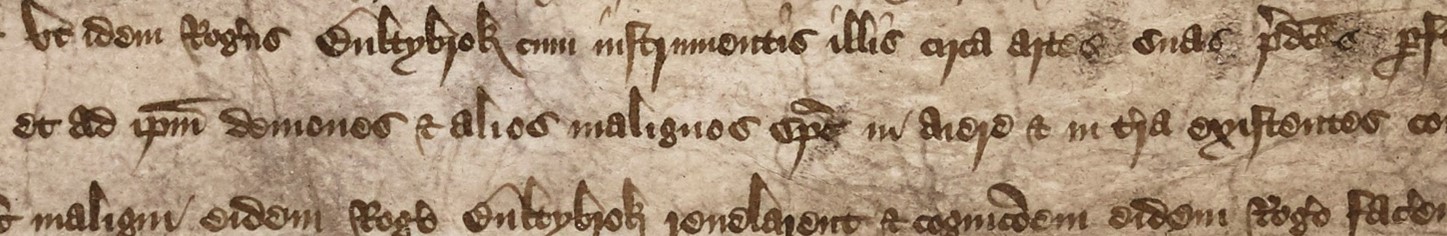 vt idem Rogũs Bultybrok cum instrumentis illis circa artes suas p̃dc̃as
et ad ip̄m demones & alios malignos sp̃c in aiere & in t̃ra existentes
maligni eidem Rogo Bultybrok reuelarent & cognic̃oem eidem Rogo